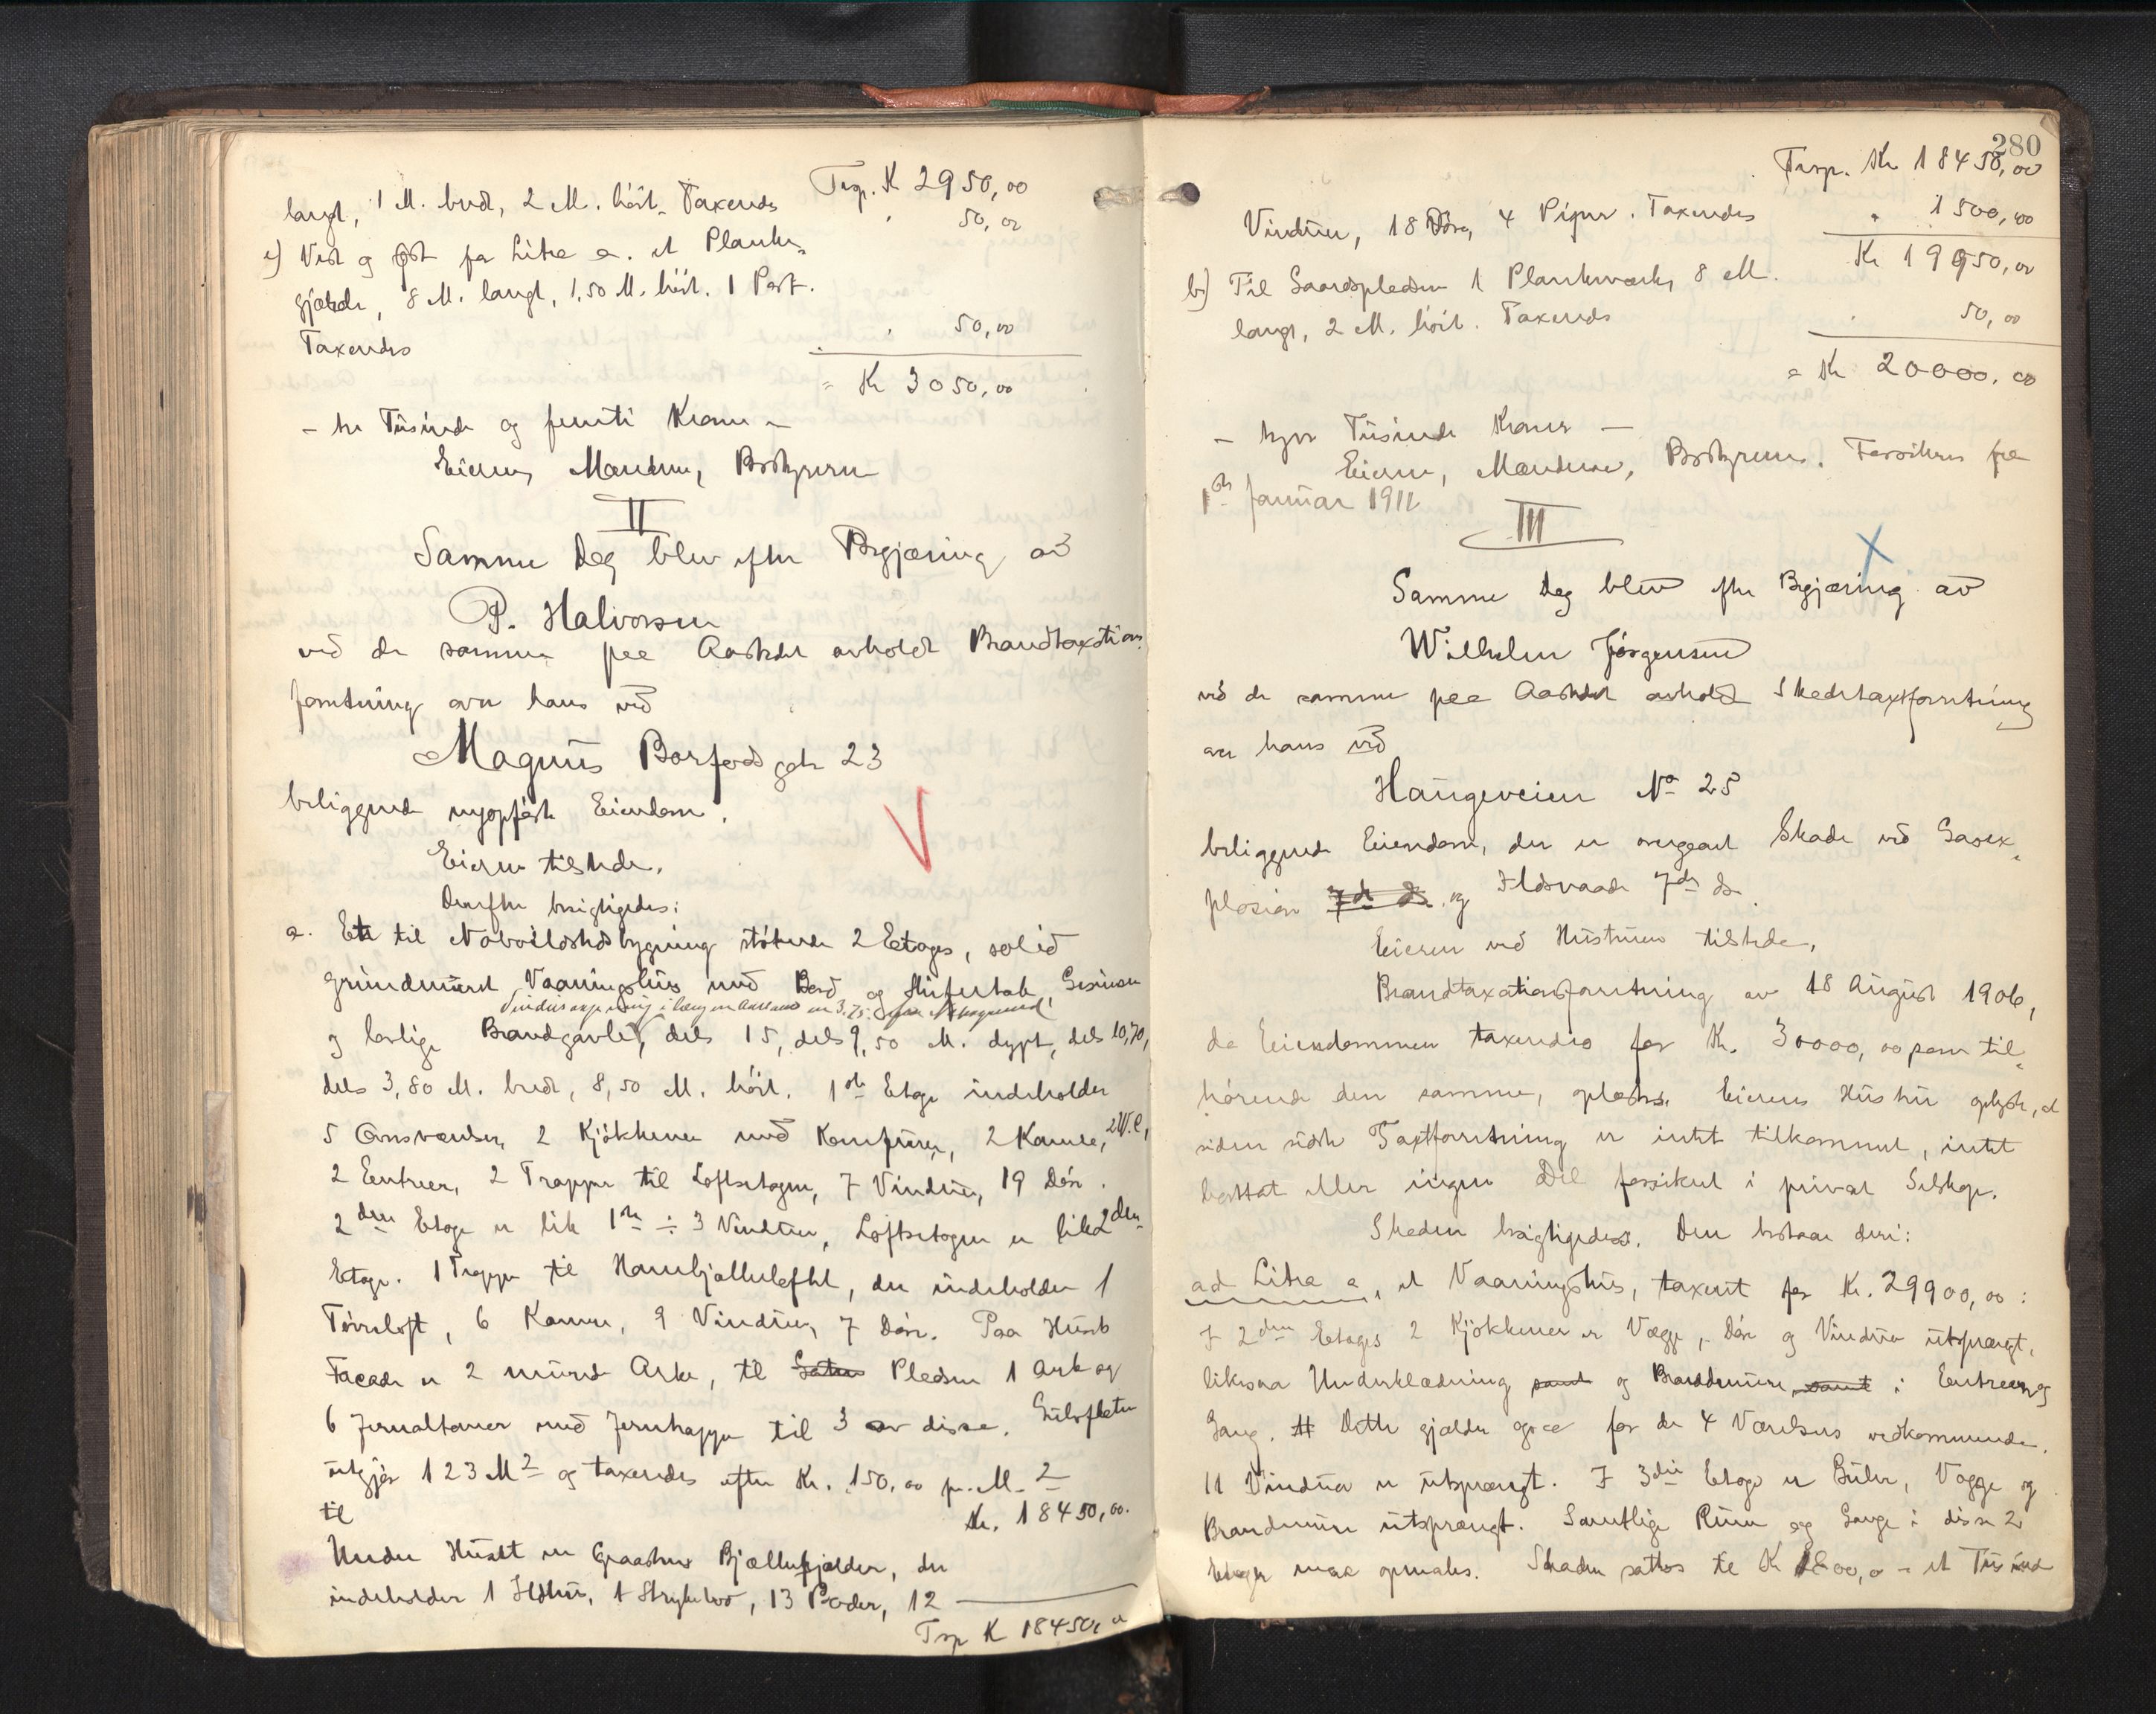 Trsp. K 2950,00
langt, 1 M. bred, 2 M. höit. Taxeredes " 50,00
c) Vest og Øst for Litra a. et Planke-
gjærde, 8 M. langt, 1,50 M. höit. 1 Port.
Taxeredes " 50,00
= Kr 3050,00
- tre Tusinde og femti Kroner -
Eieren, Mændene, Bestyreren
II
Samme Dag blev efter Begjæring av
P. Halvorsen
ved de samme paa Aastedet avholdt Brandtaxations
forretning over hans ved
Magnus Barfods gate 23
beliggende nyopförte Eiendom.
Eieren tilstede.
Derefter besigtigedes:
a. Et til Nabovildstedsbygning stötende 2 Etages, solid
grundmuret Vaaningshus med Bord og Skifertak, Gesimser
Vindusaapning i
og lovlige Brandgavle, dels 15, dels 9,50 M. dypt, dels 10,70,
dels 3,80 M. bredt, 8,50 M. höit. 1ste Etage indeholder
5 Onsværelser, 2 Kjökkener med Komfurer, 2 Kamre, 2 W.C,
2 Entreer, 2 Trapper til Loftsetagen, 7 Vinduer, 19 Döre.
2den Etage er lik 1ste ÷ 3 Vinduer, Loftsetagen er lik 2den
Etage. 1 Trappe til Hanebjælkeloftet, der indeholder 1
Törreloft, 6 Kamre, 9 Vinduer, 7 Döre. Paa Husets
Facade er 2 murede Arke, til Gaten Pladsen 1 Ark og
6 Jernaltaner med Jerntrappe til 3 av disse. Gulvflaten
utgjör 123 M2 og taxeredes efter Kr. 150,00 pr. M2
til Kr. 18450,00.
Under Huset er Graastens Bjælkekjælder, der
indeholder 1 Ildhus, 1 Strykebod, 13 Boder, 12
Trsp K 18450,00
280
Trsp. Kr 18450,00
Vinduer, 18 Döre, 4 Piper. Taxeredes " 1500,00
Kr 19950,00
b) Til Gaardspladsen 1 Plankeværk, 8 M.
langt, 2 M. höit. Taxeredes " 50,00
= Kr 20000,00
- tyve Tusinde Kroner -
Eieren, Mændene, Bestyreren. Forsikres fra
1ste Januar 1911
III
Samme Dag blev efter Begjæring av
Wilhelm Jörgensen
ved de samme paa Aastedet avholdt Skadetaxtforretning
over hans ved
Haugeveien No 25
beliggende Eiendom, der er overgaaet Skade ved Gasex-
plosion 7de ds. og Ildsvaade 7de ds.
Eieren ved Hustruen tilstede.
Brandtaxationsforretning av 18 August 1906,
da Eiendommen taxeredes for Kr. 30000,00 som til-
hörende den samme, oplæstes. Eierens Hustru oplyste, at
siden sidste Taxtforretning er intet tilkommet, intet
borttat eller ingen Del forsikret i privat Selskap.
Skaden besigtigedes. Den bestaar deri:
ad Litra a, et Vaaningshus, taxert for Kr. 29900,00:
I 2den Etages 2 Kjökkener er Vægge, Döre og Vinduer utsprængt,
likesaa Underklædning samt og Brandmure samt i Entreer og
Gang. Dette gjælder ogsaa for de 4 Værelsers vedkommende.
11 Vinduer er utsprængt. I 3die Etage er Gulve, Vægge og
Brandmure utsprængt. Samtlige Rum og Gange i disse 2
Etager maa opmales. Skaden sattes til K 1800,00 - et Tusind